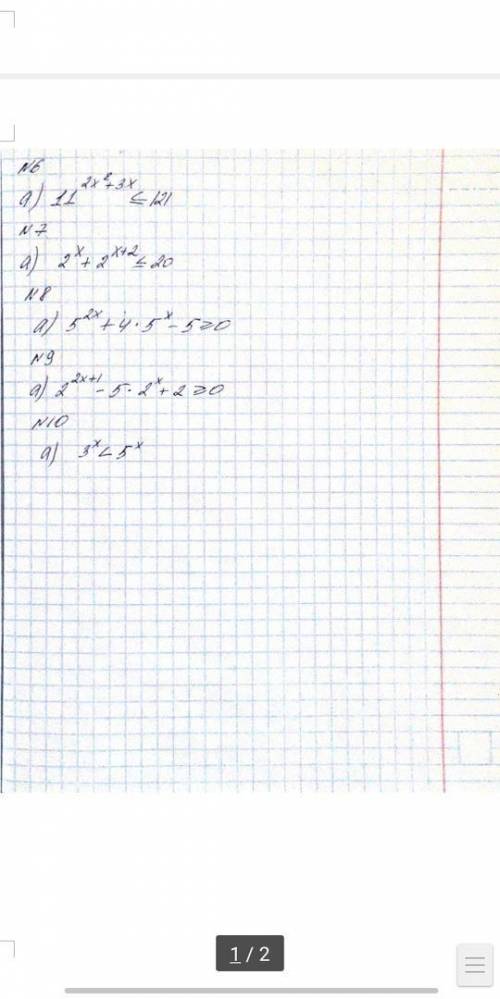 N6
а) 11^{2x²+3x} ≤ 121
N7
а) 2^x + 2^{x+2} ≤ 20
N8
а) 5^{2x} + 4 · 5^x - 5 ≥ 0
N9
а) 2^{2x+1} - 5 · 2^x + 2 ≥ 0
N10
а) 3^x < 5^x
1 / 2